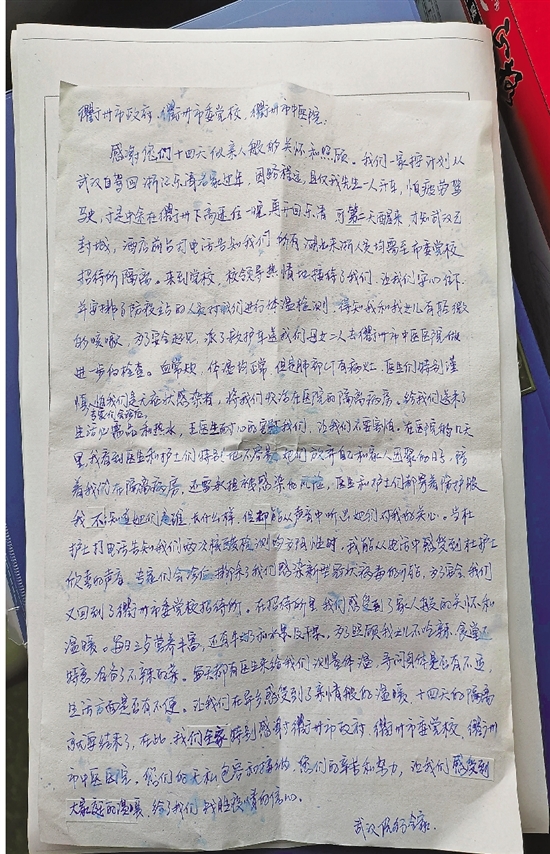 衢州市政府、衢州市委党校、衢州市中医院:
感谢您们十四天似亲人般的关怀和照顾。我们一家按计划从
武汉自驾回浙江乐清老家过年,因路程远,且仅我先生一人开车,怕疲劳驾
驶,于是中途在衢州下高速住一晚,再开回乐清。可第二天醒来才知武汉已
封城,酒店前台打电话告知我们所有湖北来浙人员均需至市委党校
招待所隔离。来到学校,校领导热情地接待了我们,让我们安心住下,
并安排了防疫站的人员对我们进行体温检测,得知我和我女儿有轻微
的咳嗽,为了安全起见,派了救护车送我们母女二人去衢州市中医医院做
进一步的检查。血常规、体温均正常,但是肺部CT有病灶,医生们特别谨
慎,怕我们是无症状感染者,将我们收治在医院的隔离病房,给我们送来了
专家们会诊后,
生活必需品和热水,王医生耐心的安慰我们,让我们不要害怕。在医院的几天
里,我看到医生和护士们特别地不容易,她们放弃自己和家人团聚的日子,陪
着我们在隔离病房,还要承担被感染的风险,医生和护士们都穿着防护服,
我不知道她们是谁,长什么样,但都能从声音中听出她们对我的关心。当杜
护士打电话告知我们两次核酸检测均为阴性时,我能从电话中感受到杜护士
欣喜的声音,专家们会诊后排除了我们感染新型冠状病毒的可能,为了安全,我们
又回到了衢州市委党校招待所。在招待所里我们感受到了家人般的关怀和
温暖。每日三歺营养丰富,还有牛奶和水果及干果。为了照顾我女儿不吃辣,食堂还
特意准备了不辣的菜。每天都有医生来给我们测量体温,寻问身体是否有不适,
生活方面是否有不便。让我们在异乡感受到了亲情般的温暖,十四天的隔离
就要结束了,在此,我们全家特别感谢衢州市政府、衢州市委党校、衢州
市中医医院。您们的无私包容和接纳,您们的辛苦和努力,让我们感受到
大家庭的温暖,给了我们战胜疫情的信心。
武汉 全家.